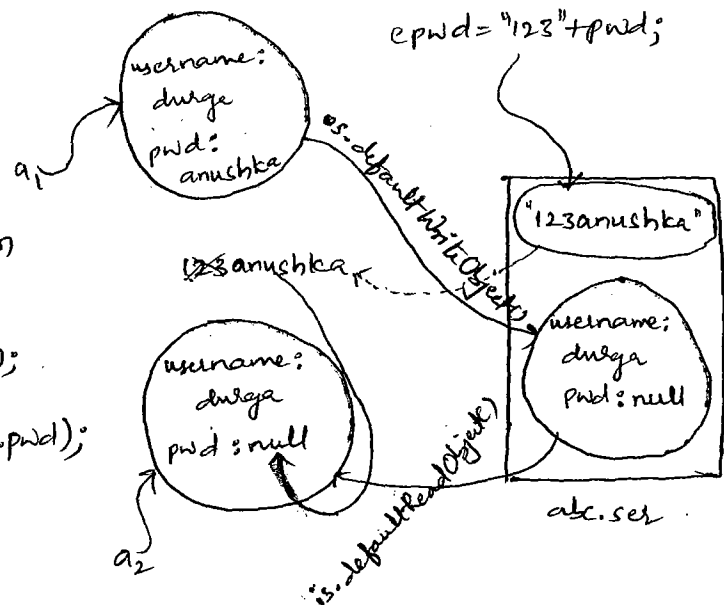 epwd="123"+pwd;
username:
durga
pwd:
anushka
a1
os.defaultWriteObject();
"123anushka"
123anushka
username:
durga
pwd:null
username:
durga
pwd:null
);
.pwd);
is.defaultReadObject()
abc.ser
a2